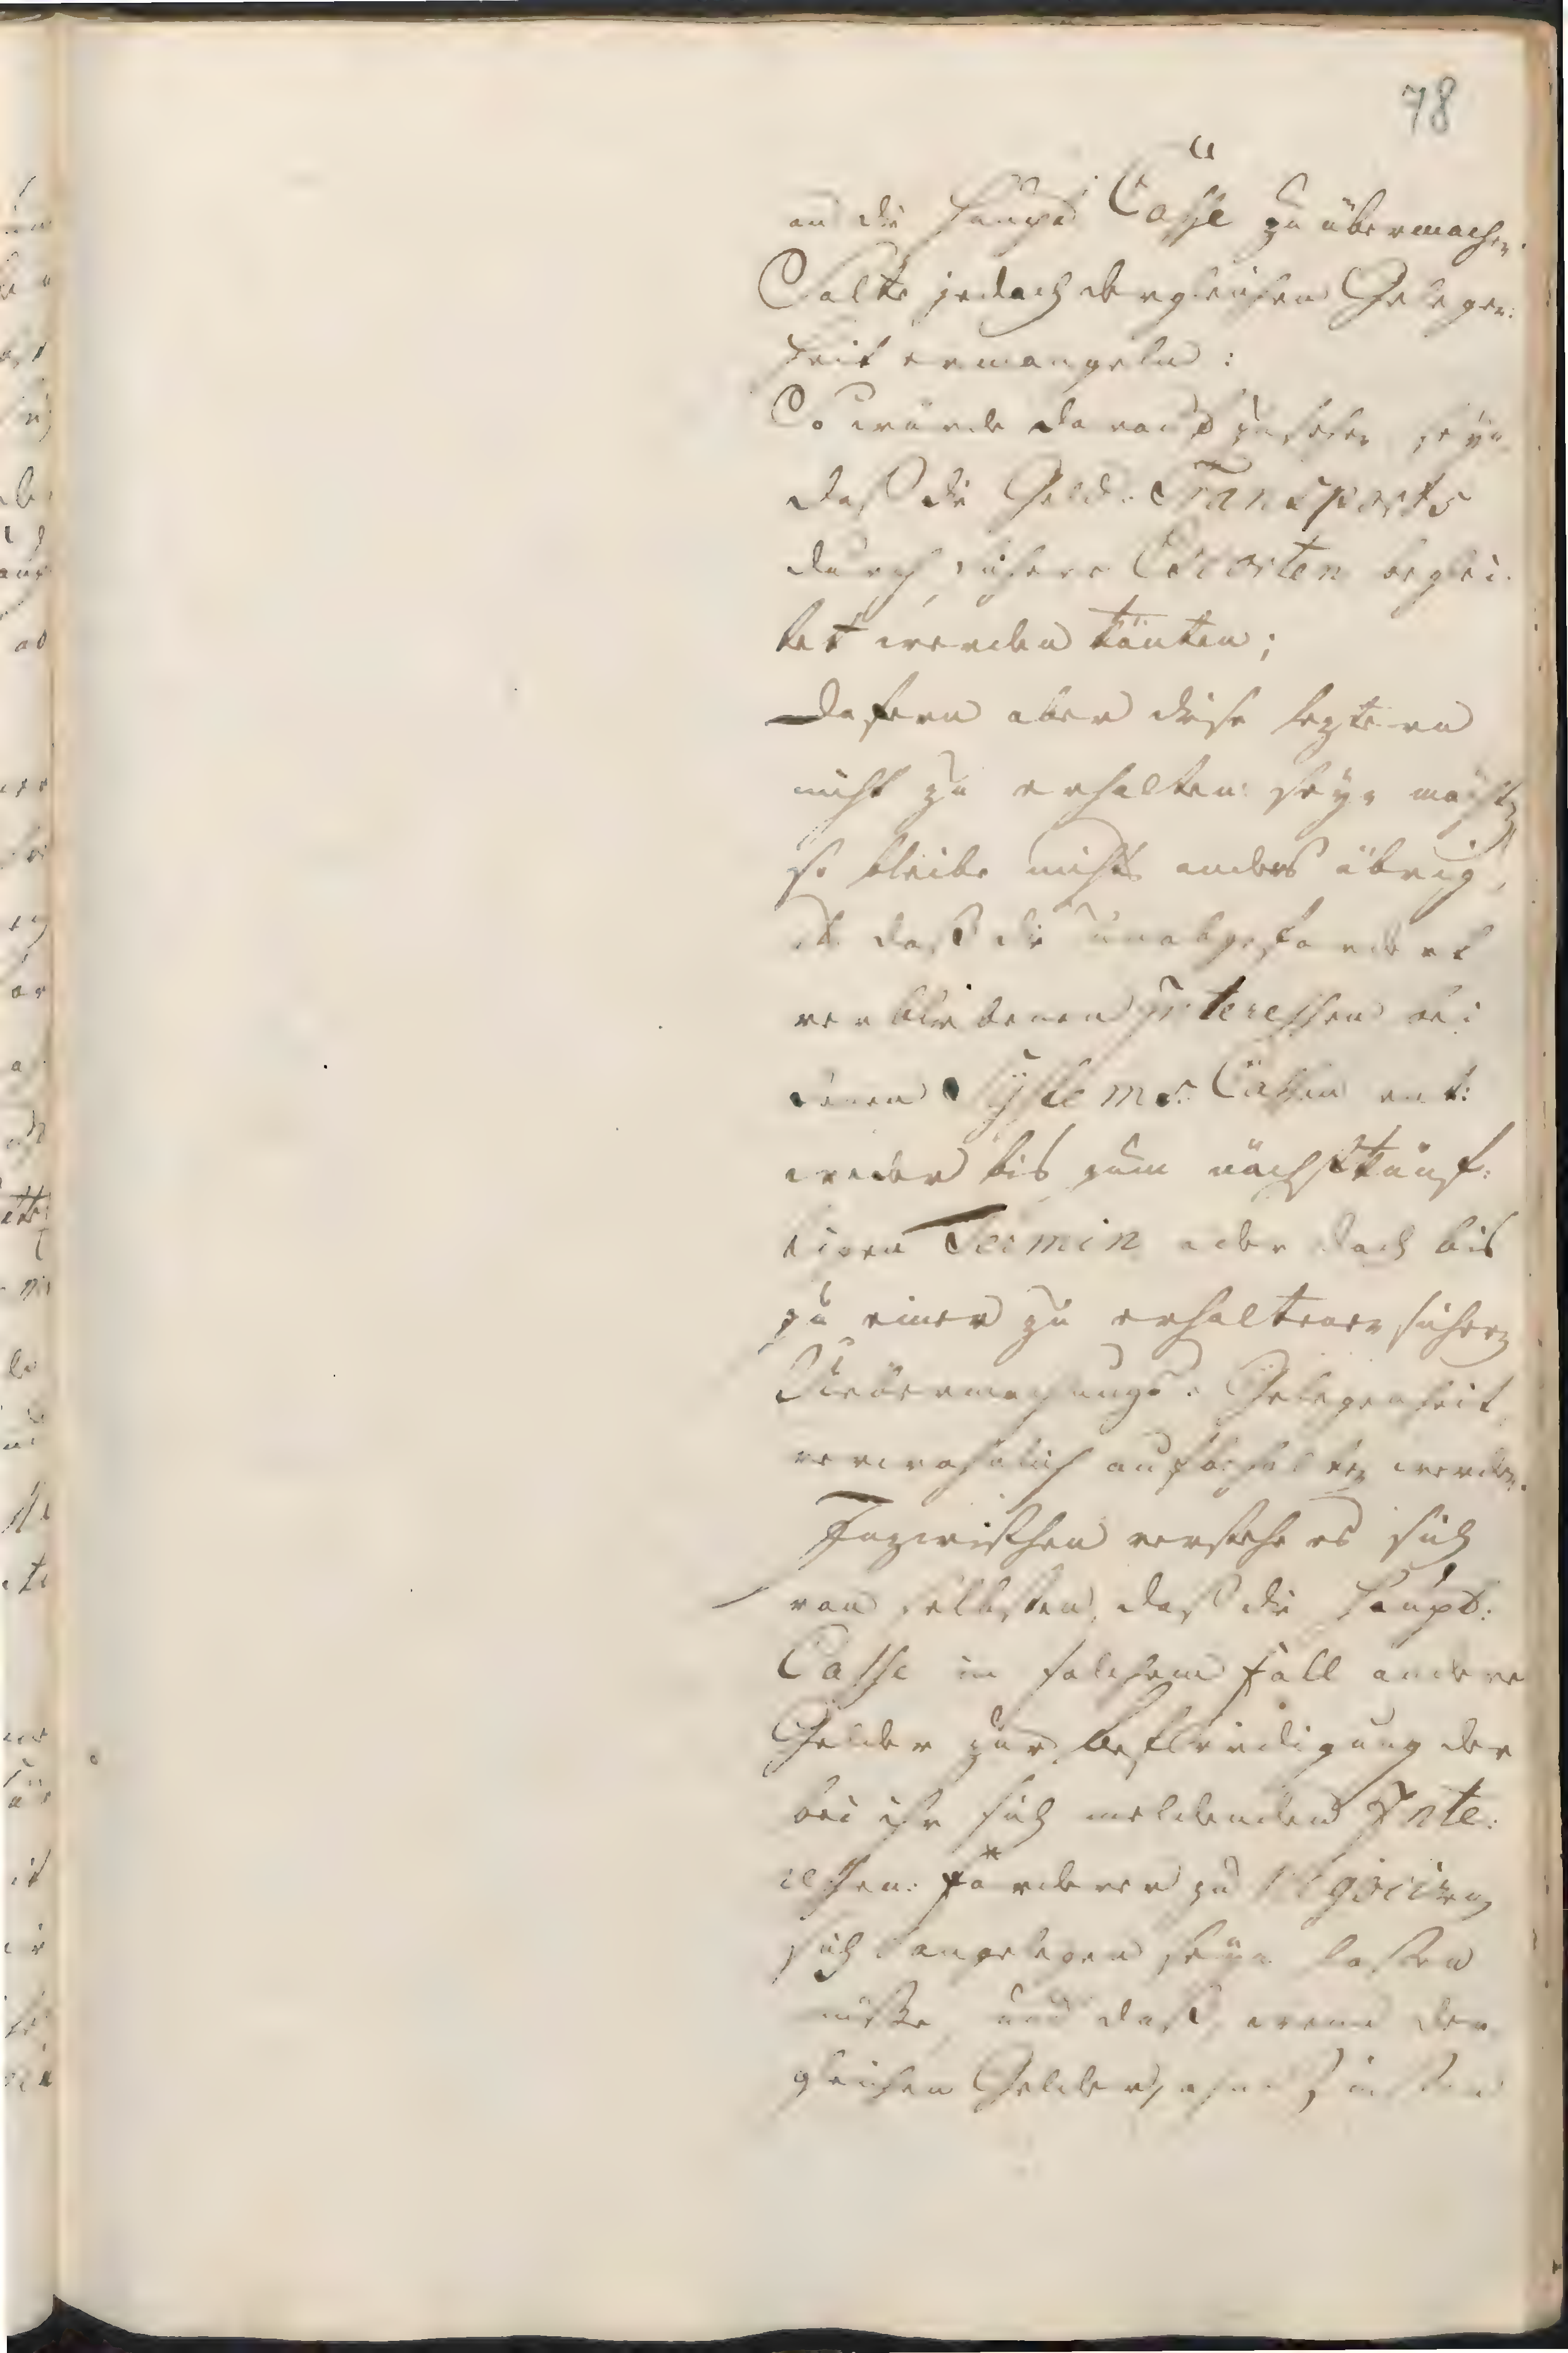 78
an die Haupt Casse zu übermachen.
Solte jedoch dergleichen Gelegen:
heit ermangeln:
So würde darauf zu sehen seyn
daß die Geld: Transports
durch sichere Escorten beglei:
tet werden könten;
Dafern aber diese leztern
nicht zu erhalten seyn möchten
so bleibe nichts anders übrig,
als daß die unabgefordert
verbliebenen Interessen bei
denen Systems: Cassen ent:
weder bis zum nächstkünf:
tigen Termin oder doch bis
zu einer zu erhaltenen sichern
Uebermachungs: Gelegenheit
verwahrlich aufbehalten werden.
Inzwischen verstehe es sich
von selbsten, daß die Haupt:
Casse in solchem Fall andere
Gelder zur Befriedigung der
bei ihr sich meldenden Inte:
ressen: Forderer zu negociren
sich angelegen seyn lassen
müsse, und daß, wenn der
gleichen Gelder, ohne Zinsen